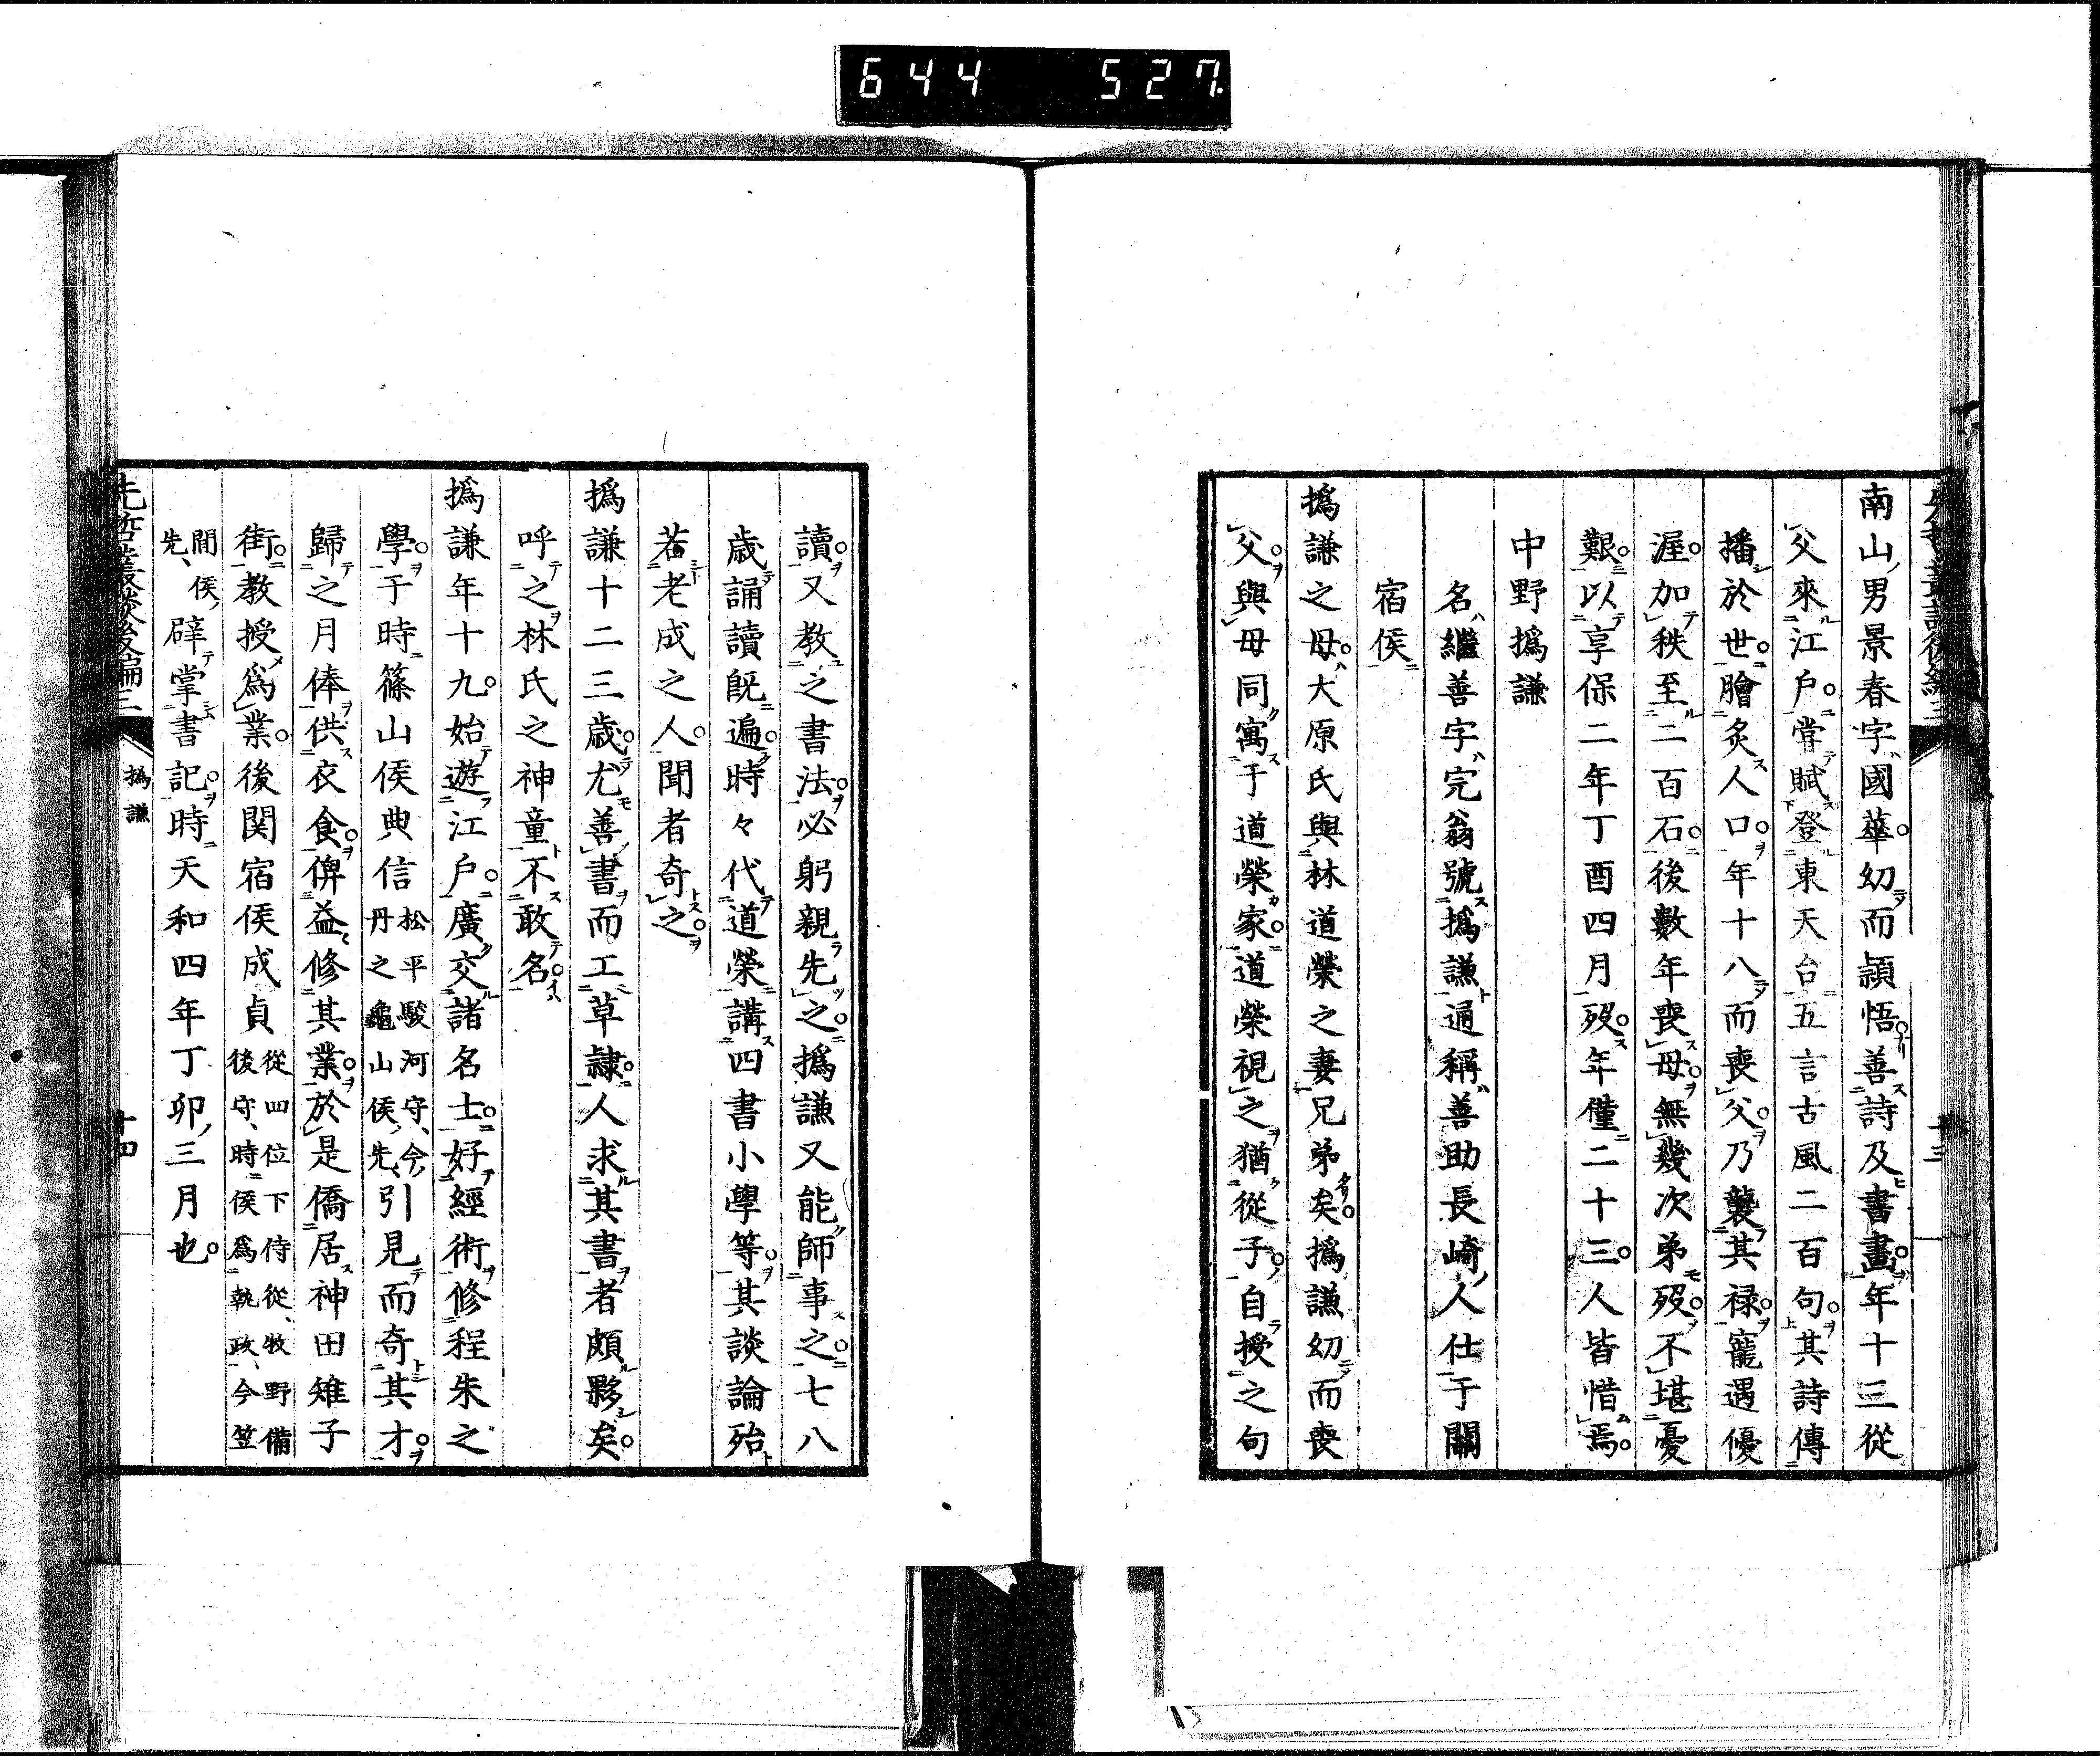 644 527
南山男景春字國華幼而頴悟善詩及書畫年十三從
父來江戶嘗賦登東天台五言古風二百句其詩傳
播於世膾炙人口年十八而喪父乃襲其禄寵遇優
渥加秩至二百石後數年喪母無幾次弟歿不堪憂
艱以享保二年丁酉四月歿年僅二十三人皆惜焉
中野撝謙
名繼善字完翁號撝謙通稱善助長崎人仕于關
宿侯
撝謙之母大原氏與林道榮之妻兄弟矣撝謙幼而喪
父與母同寓于道榮家道榮視之猶從子自授之句
讀又教之書法必躬親先之撝謙又能師事之七八
歳誦讀既遍時々代道榮講四書小學等其談論殆
若老成之人聞者奇之
撝謙十二三歳尤善書而工草隷人求其書者頗夥矣
呼之林氏之神童不敢名
撝謙年十九始遊江戶廣交諸名士好經術修程朱之
學于時篠山侯典信松平駿河守、今丹之龜山侯、先引見而奇其才
歸之月俸供衣食俾益修其業於是僑居神田雉子
街教授爲業後関宿侯成貞從四位下侍從、牧野備後守、時侯爲執政、今笠
間侯先、辟掌書記時天和四年丁卯三月也
先哲叢談後編三
撝謙
十四